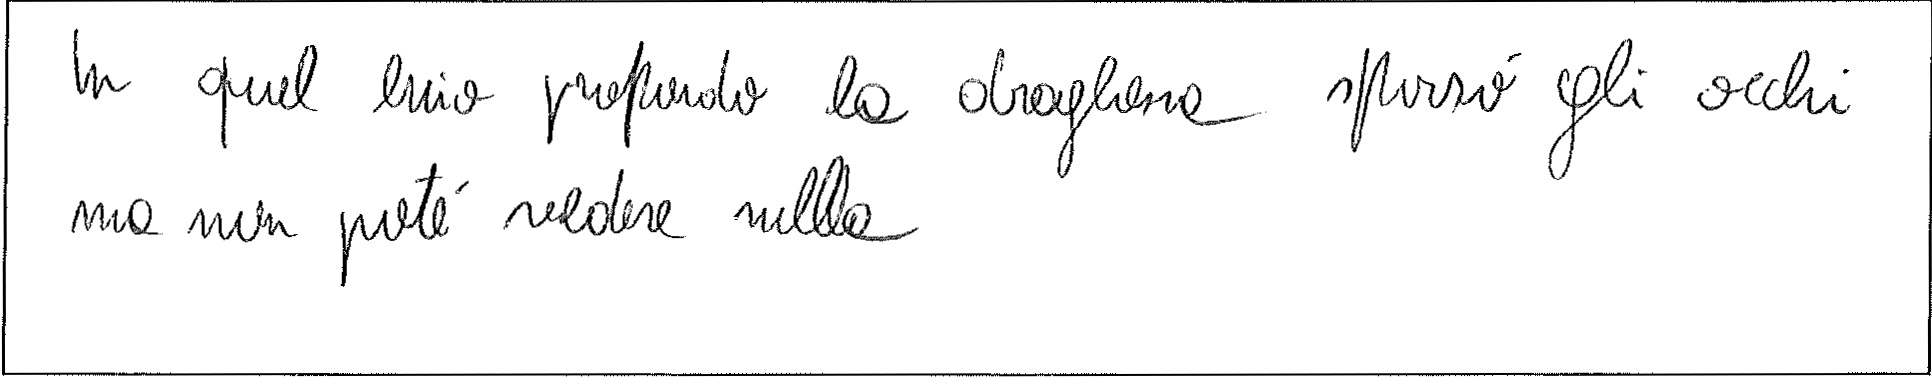 In quel buio profondo la draghessa sforzó gli occhi
ma non poté vedere nulla